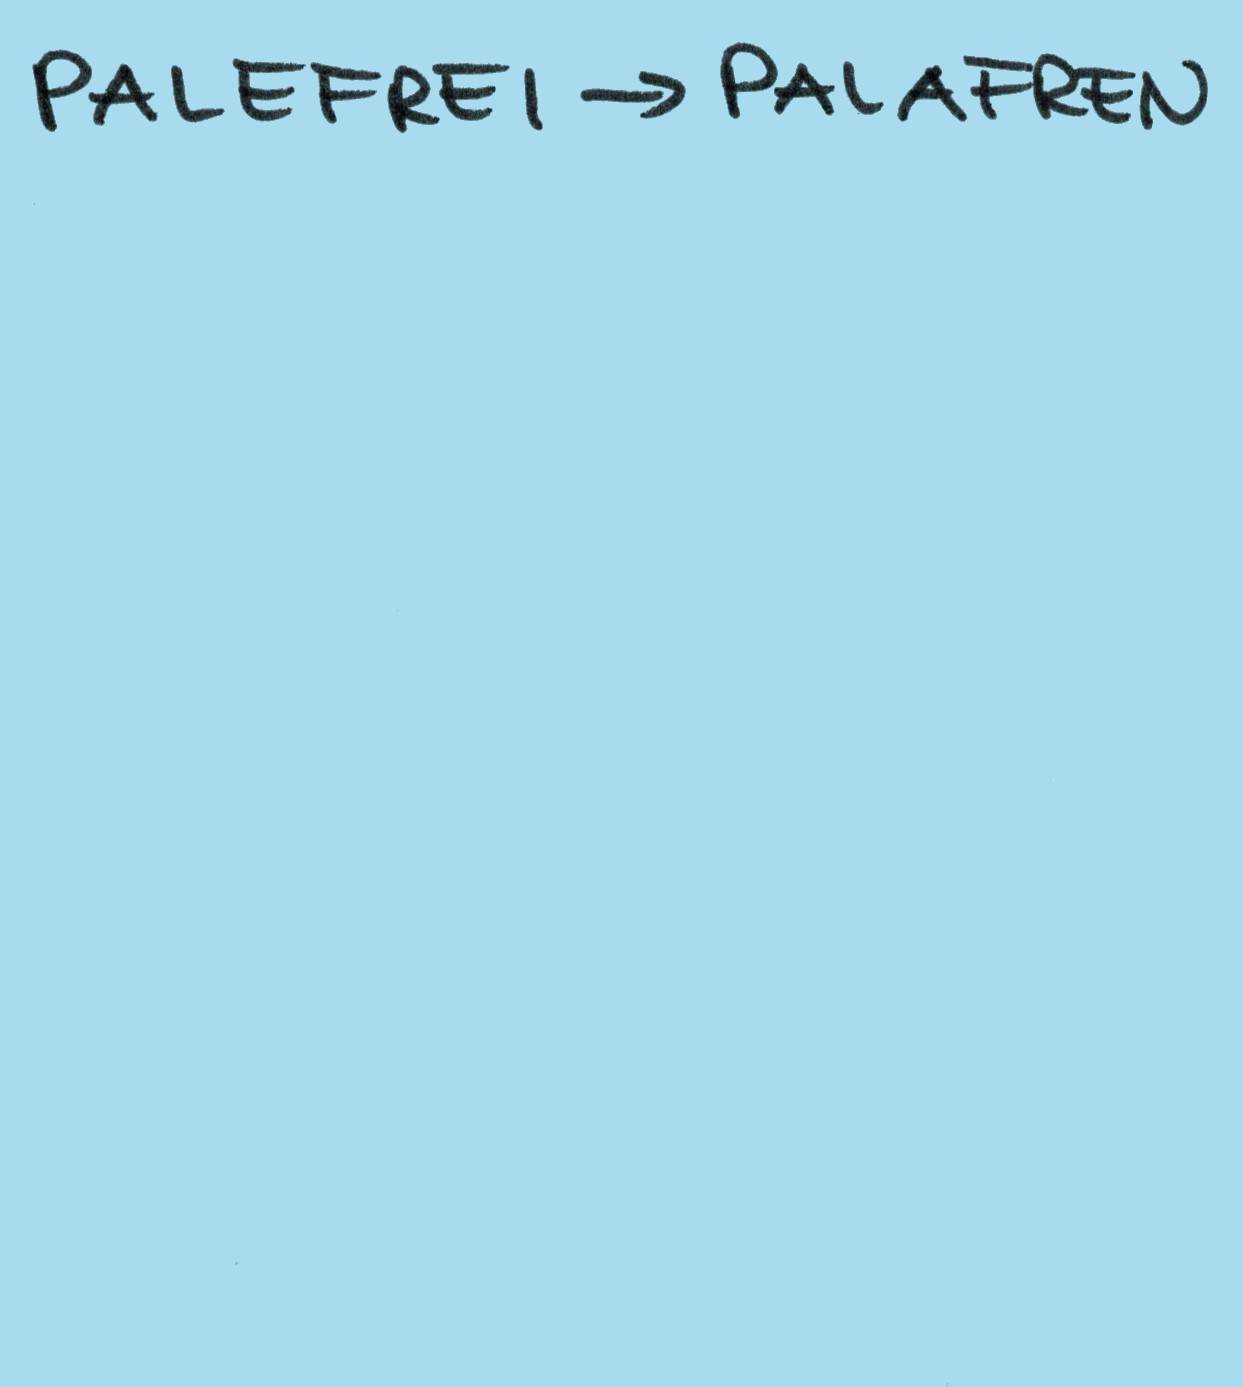 PALEFREI → PALAFREN